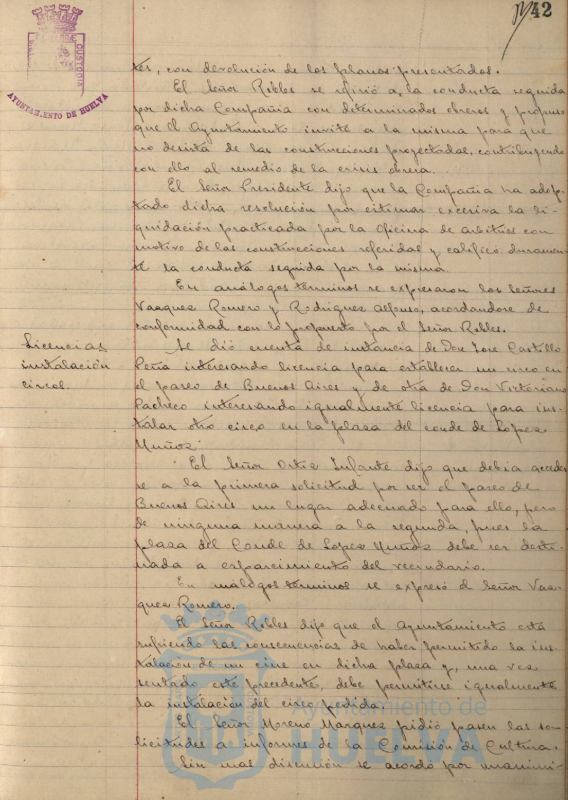 42
CUSTODIA
AYUNTAMIENTO DE HUELVA
tes, con devolución de los planos presentados.
El Señor Robles se refirió a la conducta seguida
por dicha Compañia con determinados obreros y propuso
que el Ayuntamiento invite a la misma para que
no desista de las construcciones proyectadas, contribuyendo
con ello al remedio de la crisis obrera.
El Señor Presidente dijo que la Compañia ha adop-
tado dicha resolución por estimar excesiva la li-
quidación practicada por la Oficina de arbitrios con
motivo de las construcciones referidas y calificó duramen-
te la conducta seguida por la misma.
En análogos términos se expresaron los Señores
Vazquez Romero y Rodriguez Alfonso, acordandose de
conformidad con lo propuesto por el Señor Robles.
Licencias
instalación
circos.
Se dió cuenta de instancia de Don Jose Castillo
Peña interesando licencia para establecer un circo en
el paseo de Buenos Aires y de otra de Don Victoriano
Pacheco interesando igualmente licencia para ins-
talar otro circo en la plaza del conde de Lopez
Muñoz.
El Señor Ortiz Infante dijo que debia acceder
se a la primera solicitud por ser el paseo de
Buenos Aires un lugar adecuado para ello, pero
de ninguna manera a la segunda, pues la
plaza del Conde de Lopez Muñoz debe ser desti-
nada a esparcimiento del vecindario.
En análogos términos se expresó el Señor Vaz-
quez Romero.
El Señor Robles dijo que el Ayuntamiento está
sufriendo las consecuencias de haber permitido la ins-
talación de un cine en dicha plaza y, una vez
sentado este precedente, debe permitirse igualmente
la instalación del circo pedida.
El Señor Moreno Marquez pidió pasen las so-
licitudes a informes de la Comisión de Cultura.
Sin mas discusión se acordó por unanimi-
Ayuntamiento de
HUELVA